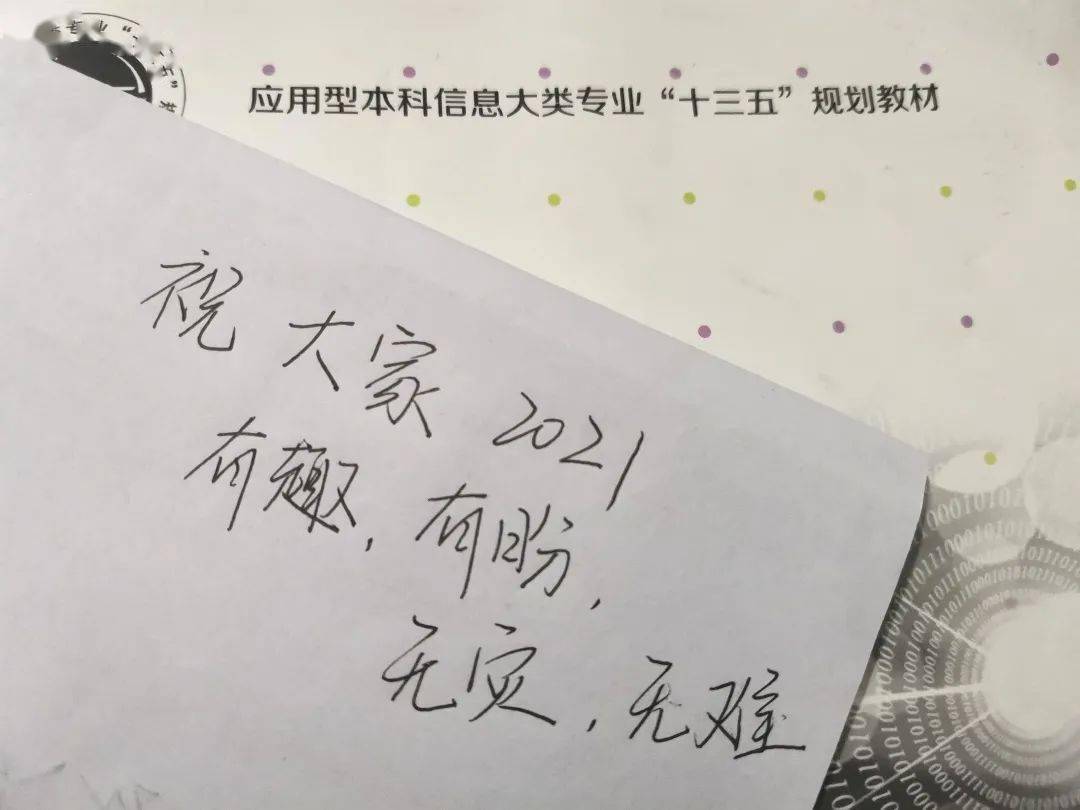 应用型本科信息大类专业“十三五”规划教材
祝大家2021
有趣，有盼，
无灾，无难